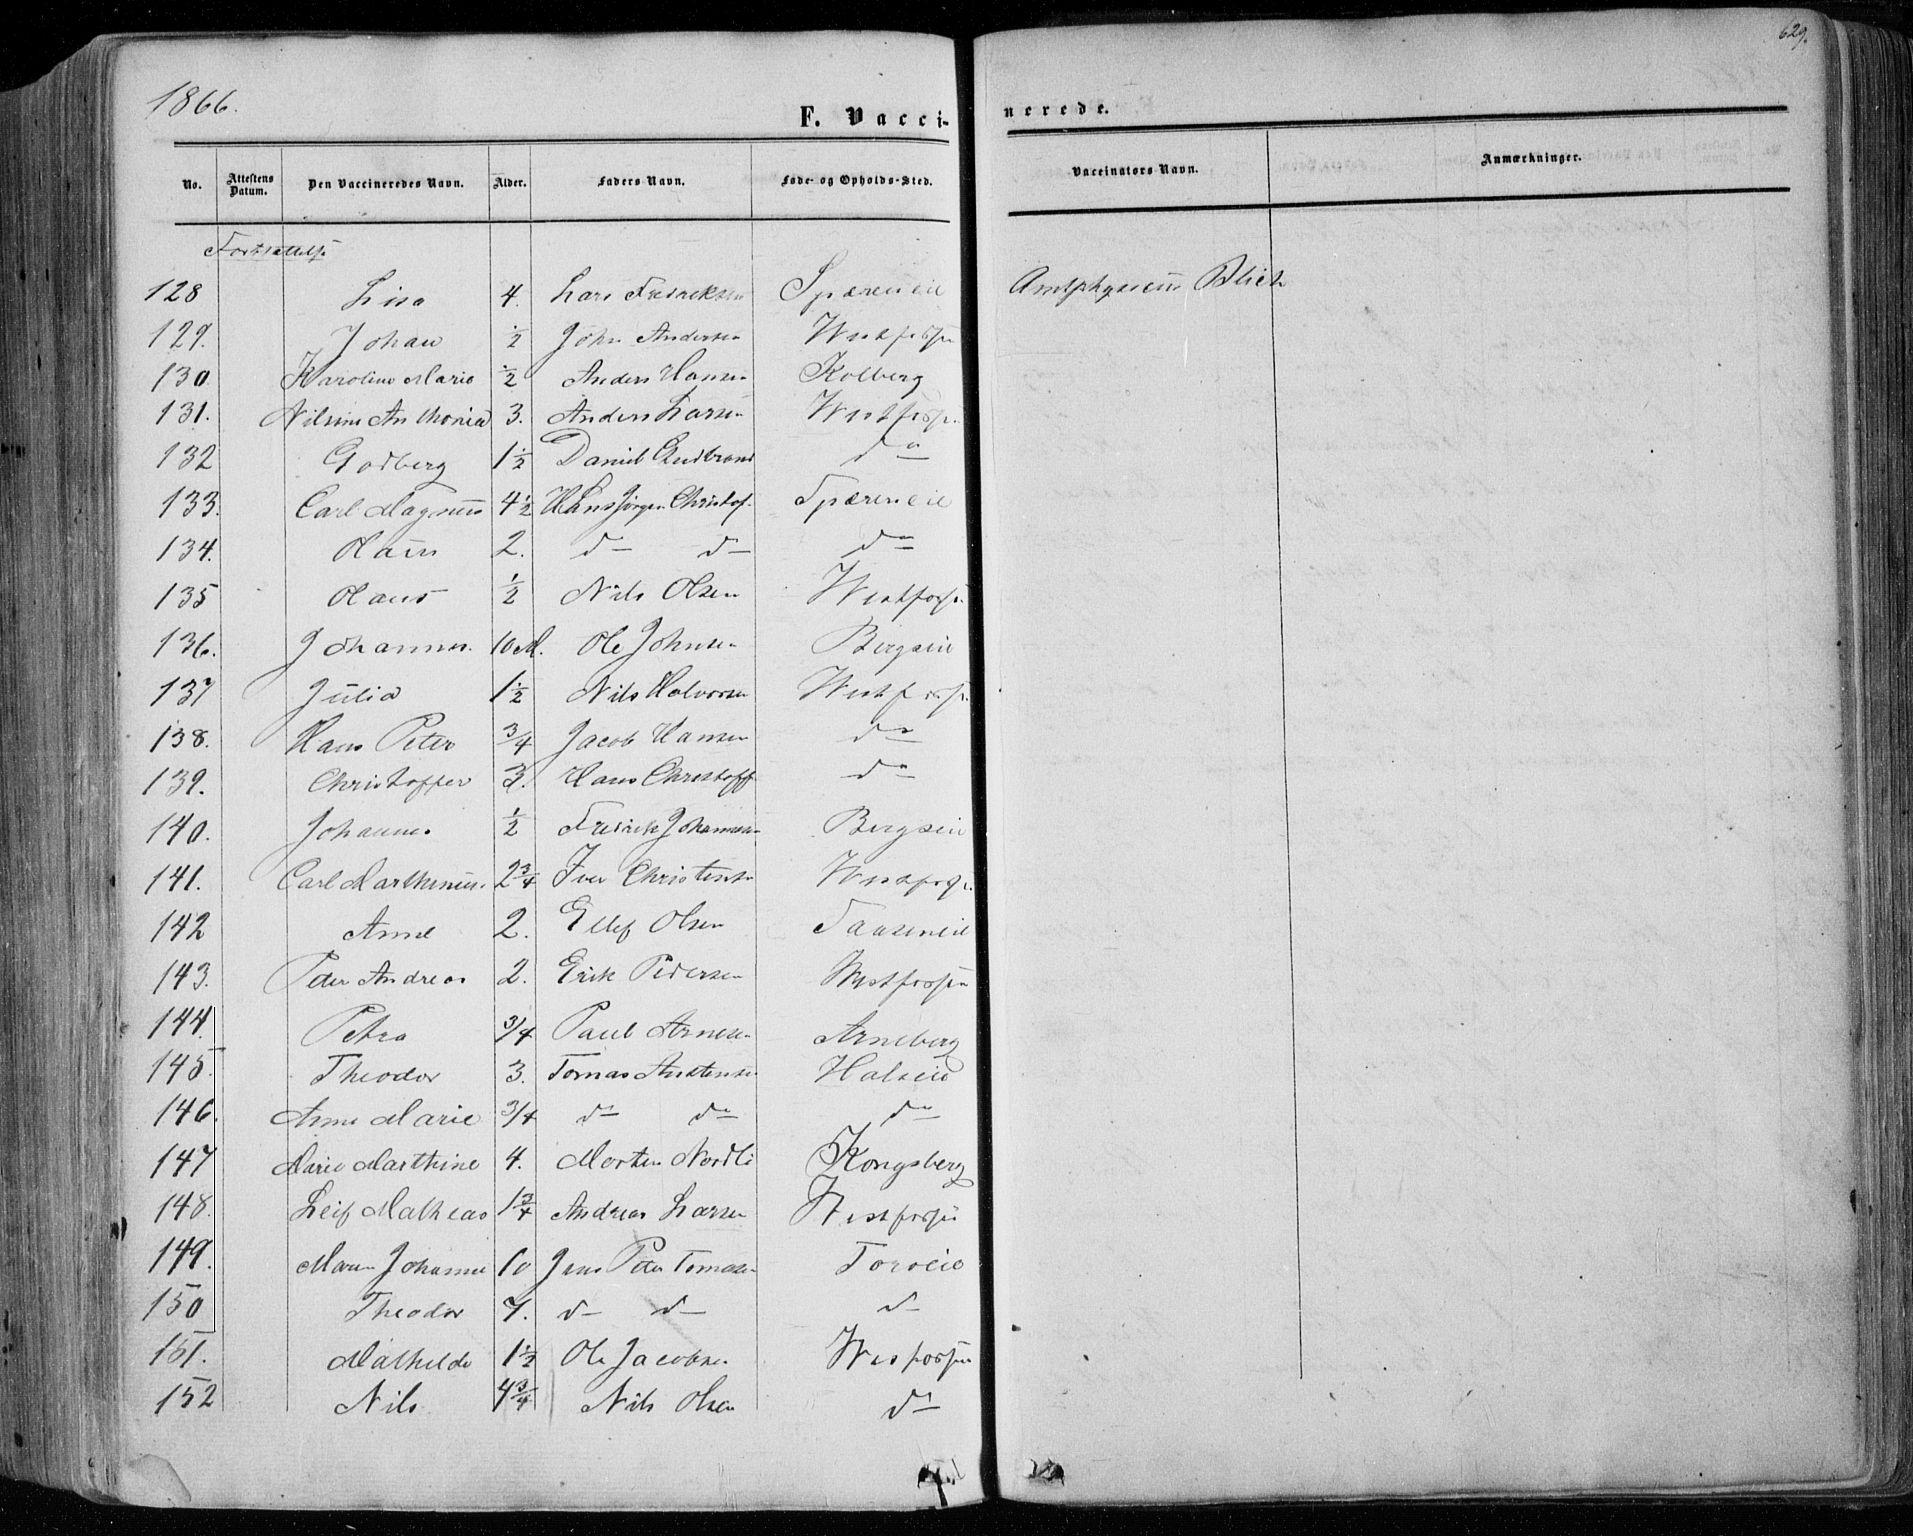 1866.
629.
F. Vacci-
nerede.
No. Attestens Datum. Den Vaccineredes Navn. Alder. Faders Navn. Føde- og Opholds-Sted. Vaccinators Navn. Anmærkninger.
Fortsættelse
128 Lisa 4. Lars Fredreksen Spæreneie Amtphysicus Blich
129. Johan ½ John Andersen Westfossen
130 Karoline Marie ½ Anders Hansen Kolberg
131. Nilsine Anthonia 3. Anders Larsen Westfossen
132 Godberg 1½ Daniel Gudbrand do
133. Carl Magnus 4½ Hans Jørgen Christof. Spæreneie
134. Hans 2. d d do
135 Hans ½ Nils Olsen Westfossen
136. Johannes. 10 M. Ole Johnsen Bergseie
137 Julia 1½ Nils Halvorsen Westfossen
138. Hans Peter ¾ Jacob Hansen do
139. Christoffer 3. Hans Christoff do
140. Johannes ½ Fredrik Johannesen Bergseie
141. Carl Marthinus. 2¾ Iver Christensen Westfossen
142 Anne 2. Ellef Olsen Faaseneie
143. Peder Andreas 2. Erik Pedersen Westfossen
144. Petra ¾ Paul Arnesen Arneberg
145. Theodor 3. Tomas Austensen Halseie
146. Anne Marie ¾ do do do
147 Marie Marthine 4. Morten Nordli Kongsberg
148. Leif Matheas 1¾ Andreas Larsen Westfossen
149. Maren Johanne 10 Jens Peter Tomasen Foroeie
150 Theodor 7. d d d
151. Mathilde 1½ Ole Jacobsen Wesfossen
152 Nils 4¾ Nils Olsen do